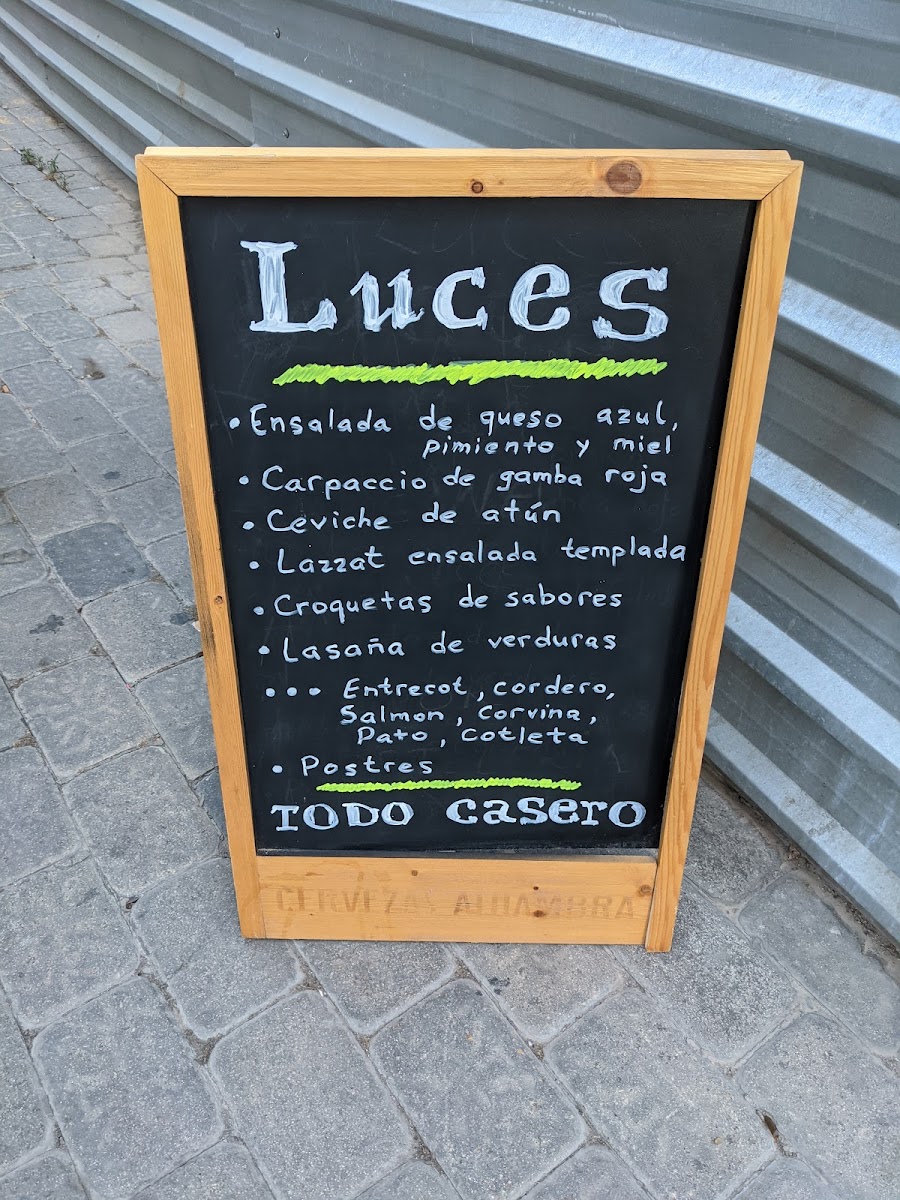 Luces
• Ensalada de queso azul,
pimiento y miel
• Carpaccio de gamba roja
• Ceviche de atún
• Lazzat ensalada templada
• Croquetas de sabores
• Lasaña de verduras
••• Entrecot, cordero,
Salmon, Corvina,
Pato, Cotleta
• Postres
TODO casero
CERVEZAS ALHAMBRA